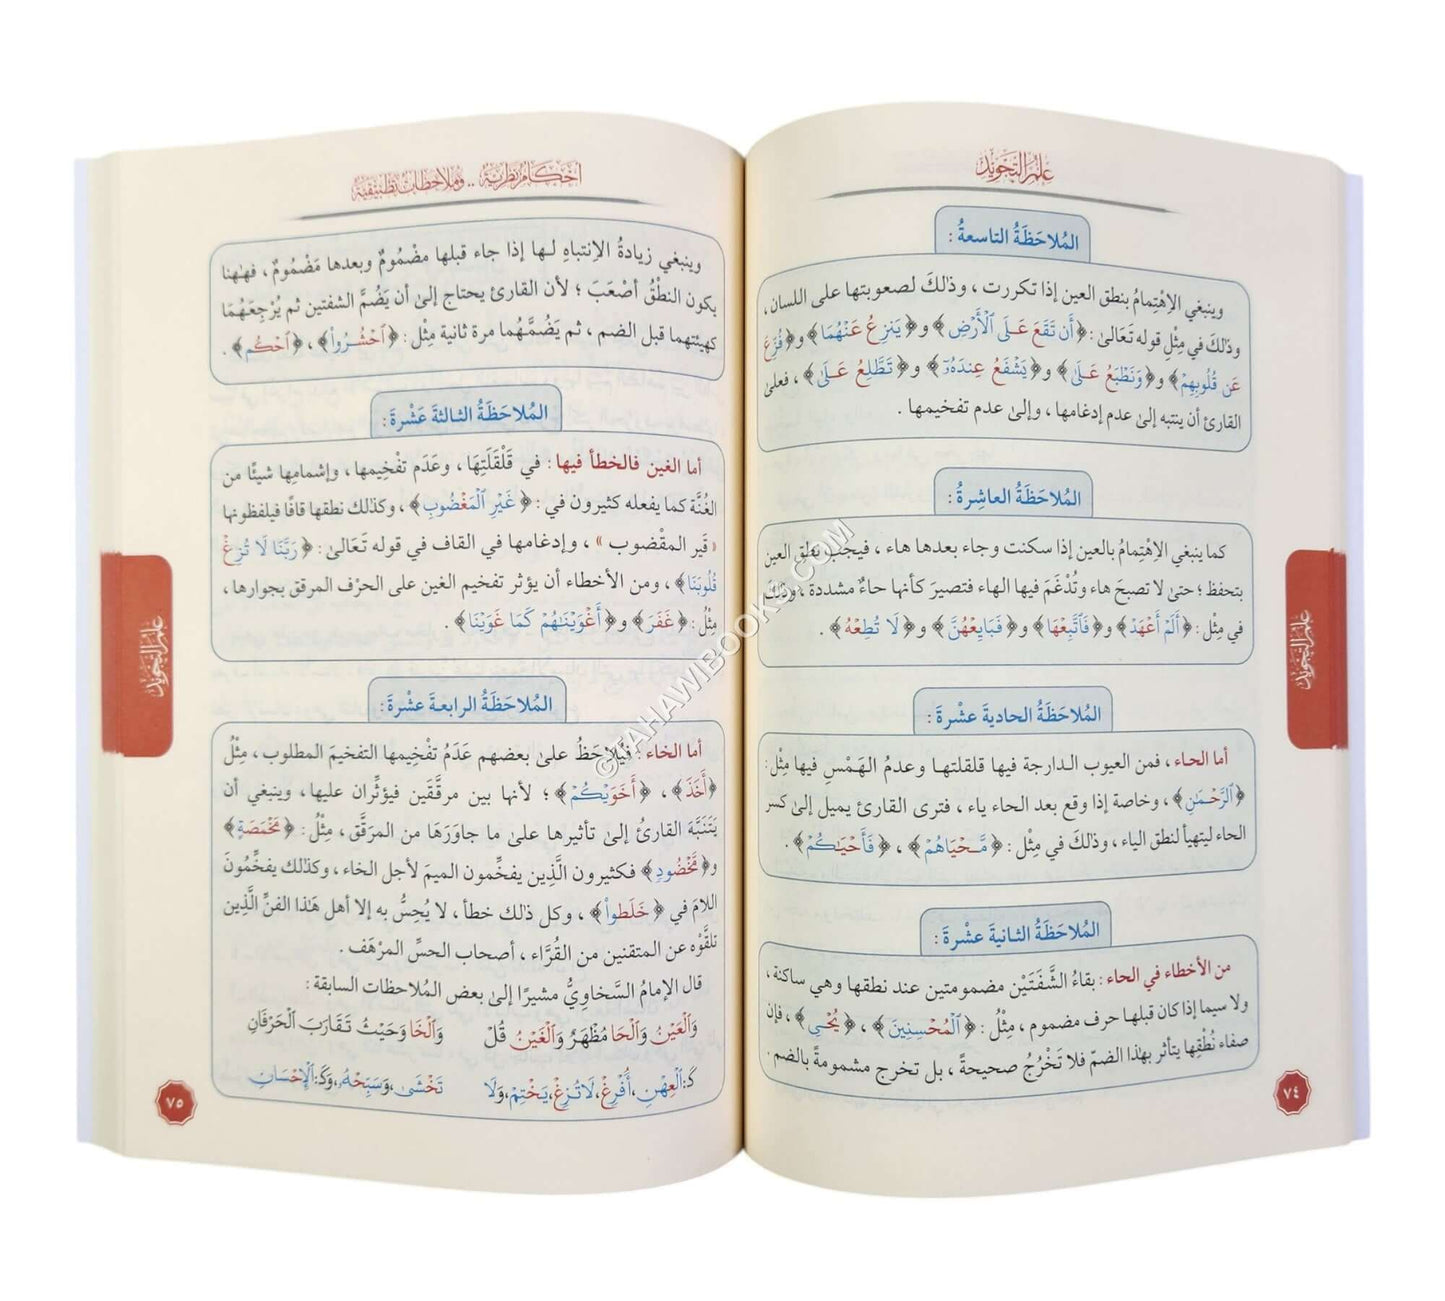 علم التجويد
الملاحظة التاسعة :
وينبغي الاِهْتِمامُ بنطق العين إذا تكررت ، وذلكَ لصعوبتها على اللسان ،
وذلكَ في مِثْلِ قوله تَعَالىٰ : ﴿أَن تَقَعَ عَلَى ٱلْأَرْضِ﴾ و﴿يَنزِعُ عَنْهُمَا﴾ و﴿فُزِّعَ
عَن قُلُوبِهِمْ﴾ و﴿وَنَطْبَعُ عَلَىٰ﴾ و﴿يَشْفَعُ عِندَهُۥٓ﴾ و﴿تَطَّلِعُ عَلَى﴾ ، فعلىٰ
القارئ أن ينتبه إلىٰ عدم إدغامها ، وإلىٰ عدم تفخيمها .
المُلاحَظَةُ العاشرةُ :
كما ينبغي الاِهْتِمامُ بالعين إذا سكنت وجاء بعدها هاء ، فيجب نطق العين
بتحفظ ؛ حتىٰ لا تصبحَ هاء وتُدْغَمَ فيها الهاء فتصيرَ كأنها حاءٌ مشددة ، وذلكَ
في مِثْل : ﴿أَلَمْ أَعْهَدْ﴾ و﴿فَٱتَّبِعْهَا﴾ و﴿فَبَايِعْهُنَّ﴾ و﴿لَا تُطِعْهُ﴾ .
المُلاحَظَةُ الحاديةَ عشْرةَ :
أما الحـاء ، فمن العيوب الـدارجة فيها قلقلتهـا وعدمُ الهَمْسِ فيها مِثْل :
﴿ٱلرَّحْمَـٰنِ﴾ ، وخاصة إذا وقع بعد الحاء ياء ، فترى القارئ يميل إلىٰ كسر
الحاء ليتهيأ لنطق الياء ، وذلكَ في مِثْل : ﴿مَّحْيَاهُمْ﴾ ، ﴿فَأَحْيَـٰكُمْ﴾ .
المُلاحَظَةُ الثـانيةَ عشْرةَ :
من الأخطاء في الحاء : بقاءُ الشَّفَتَيْنِ مضمومتين عند نطقها وهي ساكنة ،
ولا سيما إذا كان قبلها حرف مضموم ، مِثْلُ : ﴿ٱلْمُحْسِنِينَ﴾ ، ﴿يُحْيِى﴾ ، فإن
صفاء نُطْقِها يتأثر بهذا الضمّ فلا تَخْرُجُ صحيحةً ، بل تخرج مشمومةً بالضم .
٧٤
علم التجويد
أحكام نظرية .. وملاحظات تطبيقية
وينبغي زيادةُ الاِنتباهِ لـها إذا جاء قبلها مضْمُومٌ وبعدها مَضْمُومٌ ، فهٰهنا
يكون النطْقُ أصْعَبَ ؛ لأن القارئ يحتاج إلىٰ أن يَضُمَّ الشفتين ثم يُرْجِعَهُمَا
كهيئتهما قبل الضم ، ثم يَضُمَّهُما مرة ثانية مِثْل : ﴿ٱحْشُرُوا۟﴾ ، ﴿ٱحْكُم﴾ .
المُلاحَظَةُ الثـالثةَ عَشْرَةَ :
أما الغين فالخطأ فيها : في قَلْقَلَتِهَا ، وعَدَم تفْخِيمها ، وإشمامِها شيئًا من
الغُنَّة كما يفعله كثيرون في : ﴿غَيْرِ ٱلْمَغْضُوبِ﴾ ، وكذٰلك نطقها قافًا فيلفظونها
« قَير المقْضوب » ، وإدغامها في القاف في قوله تَعَالىٰ : ﴿رَبَّنَا لَا تُزِغْ
قُلُوبَنَا﴾ ، ومن الأخطاء أن يؤثر تفخيم الغين على الحرْف المرقق بجوارها ،
مِثْلُ : ﴿غَفَرَ﴾ و﴿أَغْوَيْنَـٰهُمْ كَمَا غَوَيْنَا﴾ .
المُلاحَظَةُ الرابعةَ عشْرةَ :
أما الخاء : فيُلاحَظُ علىٰ بعضهم عَدَمُ تفْخِيمها التفخيمَ المطلوب ، مِثْلُ
﴿أَخَذَ﴾ ، ﴿أَخَوَيْكُمْ﴾ ؛ لأنها بين مرقَّقَين فيؤثِّران عليها، وينبغي أن
يَتَنَبَّهَ القارئُ إلىٰ تأثيرها علىٰ ما جاوَرَهَا من المرَقَّق ، مِثْلُ : ﴿مَخْمَصَةٍ﴾
و﴿مَّخْضُودٍ﴾ فكثيرون الَّذِين يفخِّمون الميمَ لأجل الخاء ، وكذٰلك يفخِّمُونَ
اللامَ في ﴿خَلَطُوا۟﴾ ، وكل ذٰلك خطأ، لا يُحِسُّ به إلا أهل هَـٰذا الفنِّ الَّذِين
تلقَّوْه عن المتقنين من القُرَّاء ، أصحاب الحسِّ المرْهَف .
قال الإمامُ السَّخاوِيُّ مشيرًا إلىٰ بعض المُلاحظات السابقة :
وَالْعَيْنُ وَالْحَا مُظْهَرٌ وَالْغَيْنُ قُلْ وَالْخَا وَحَيْثُ تَقَارَبَ الْحَرْفَانِ
كَـ:الْعِهْنِ، أَفْرِغْ، لَا تُزِغْ، يَخْتِمْ، وَلَا تَخْشَىٰ، وَسَبِّحْهُ، وَكَـ:الْإِحْسَانِ
٧٥
علم التجويد
© TAHAWIBOOKS.COM